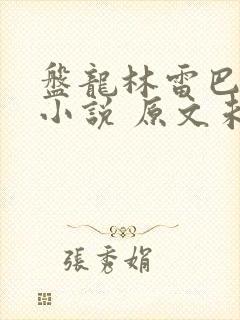 盤龍林雷巴
小說 原文未
張秀娟